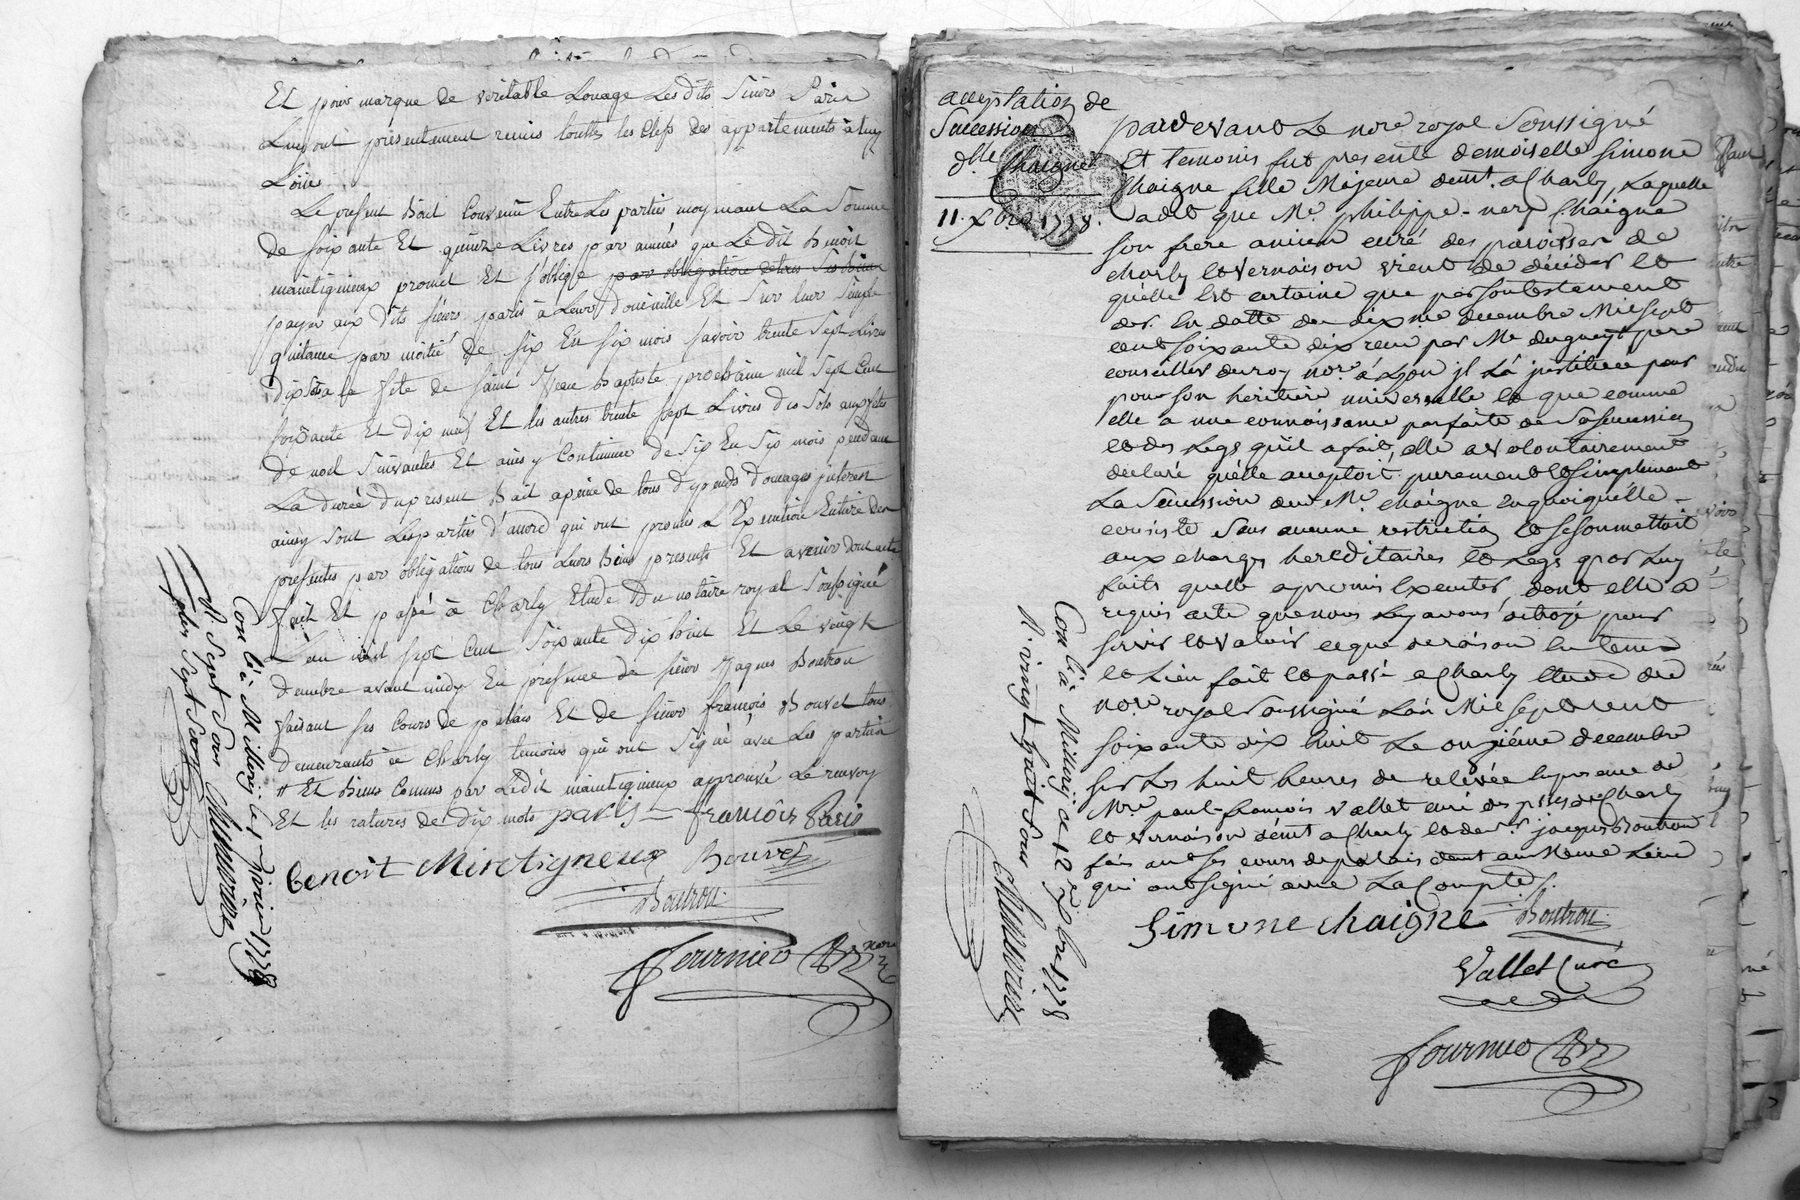 Et pour marque de veritable Louage Les dits sieurs Paris
Luy ont présentement remis touttes les clefs des appartements a luy
Loüés
Le présent Bail Convenu Entre Les parties moyenant La Somme
de soixante Et quinze Livres par année que Le dit Benoit
maintigneux promet Et s'oblige par obligation de tous ses biens
payer aux dits sieurs paris à Leur domicille Et sur leur simple
quitance par moitié de six En six mois savoir trente Sept Livres
dix sols a la fete de saint Jean Baptiste prochaine mil Sept Cent
soixante Et dix neuf Et les autres trente Sept Livres dix Sols aux fetes
de noel Suivantes Et ainsy Continuer de Six En Six mois pendant
La durée du présent Bail apeine de tous dépends domages interest
ainsy sont Les parties d'accord qui ont promis L'Execution Entiere des
présentes par obligations de tous Leurs Biens presents Et avenir dont acte
fait Et passé à Charly Etude Du notaire royal Soussigné
L'an mil sept Cent soixante dix huit Et Le vingt
avant midy En présence de sieur Jaques Boutrou
faisant ses Cours de palais Et de sieur francois Bouvet tous
demeurants à Charly temoins qui ont Signé avec Les parties
# Et Biens Comms par Ledit maintigneux approuvé Le renvoy
Et les ratures de Dix mots paris francois Paris
benoit Mintigneux Bouvet
Boutrou
Fournier
Con lé à Millery ce janvier 1779
R Sept Sous
acceptation de
Succession
dlle Chaigne
11. Xbre 1778.
pardevant Le nore royal Soussigné
Et temoins fut presente demoiselle Simone
Chaigne fille Majeure demt. a Charly, Laquelle
a dit que Me. philippe-nery Chaigne
son frere ancien curé des paroisses de
charly et Vernaison vient de décéder et
qu'elle Est certaine que par son testament
der. En datte du dix me decembre Mil sept
cent soixante dix reçu par Me dugueyt pere
conseiller du roy nore. à Lyon il L'à instituée pour
pour son heritiere universelle et que comme
elle a une connoissance parfaite de Sa succession
et des Legs qu'il a fait, elle a volontairement
declaré qu'elle acceptoit purement et simplement
La Succession dudt Me. Chaigne En quoiqu'elle
consiste Sans aucune restriction et se soumettoit
aux charges hereditaires et Legs par Luy
faits quelle a promis Executer, dont elle a
requis acte que nous Luy avons octroyé pour
servir et valoir ce que de raison En tems
et Lieu fait et passé a Charly Etude du
nore royal Soussigné L'an Mil sept cent
soixante dix huit Le onzième decembre
sur Les huit heures de relevée En presence de
Mre paul-françois Vallet curé des psses de Charly
et Vernaison demt a Charly et de sr. jacques Boutrou
faisant ses cours de palais demt au Meme Lieu
qui ont signé avec La Compte.
Simone chaigne Boutrou
Vallet Curé
Fournier
Con lé à Millery ce 12 Xbre 1778
R. vingt huit Sous